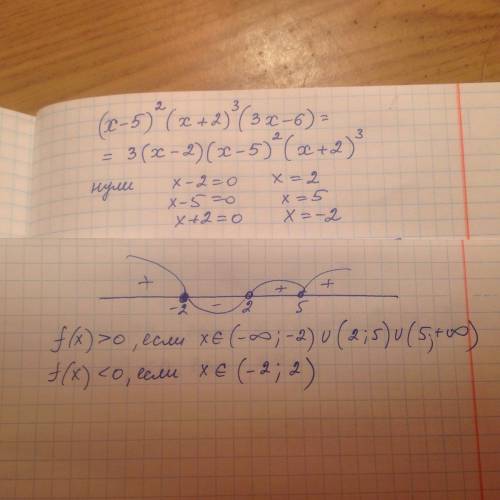 (x-5)²(x+2)³(3x-6)=
= 3(x-2)(x-5)²(x+2)³
нули x-2=0 x=2
x-5=0 x=5
x+2=0 x=-2
+ - + +
-2 2 5
f(x)>0, если x∈(-∞;-2)∪(2;5)∪(5;+∞)
f(x)<0, если x∈(-2;2)